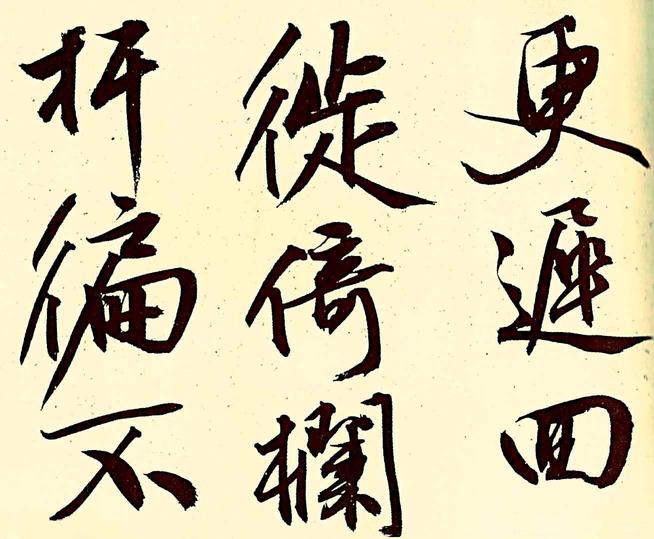 更遲回
徙倚欄
杆徧不